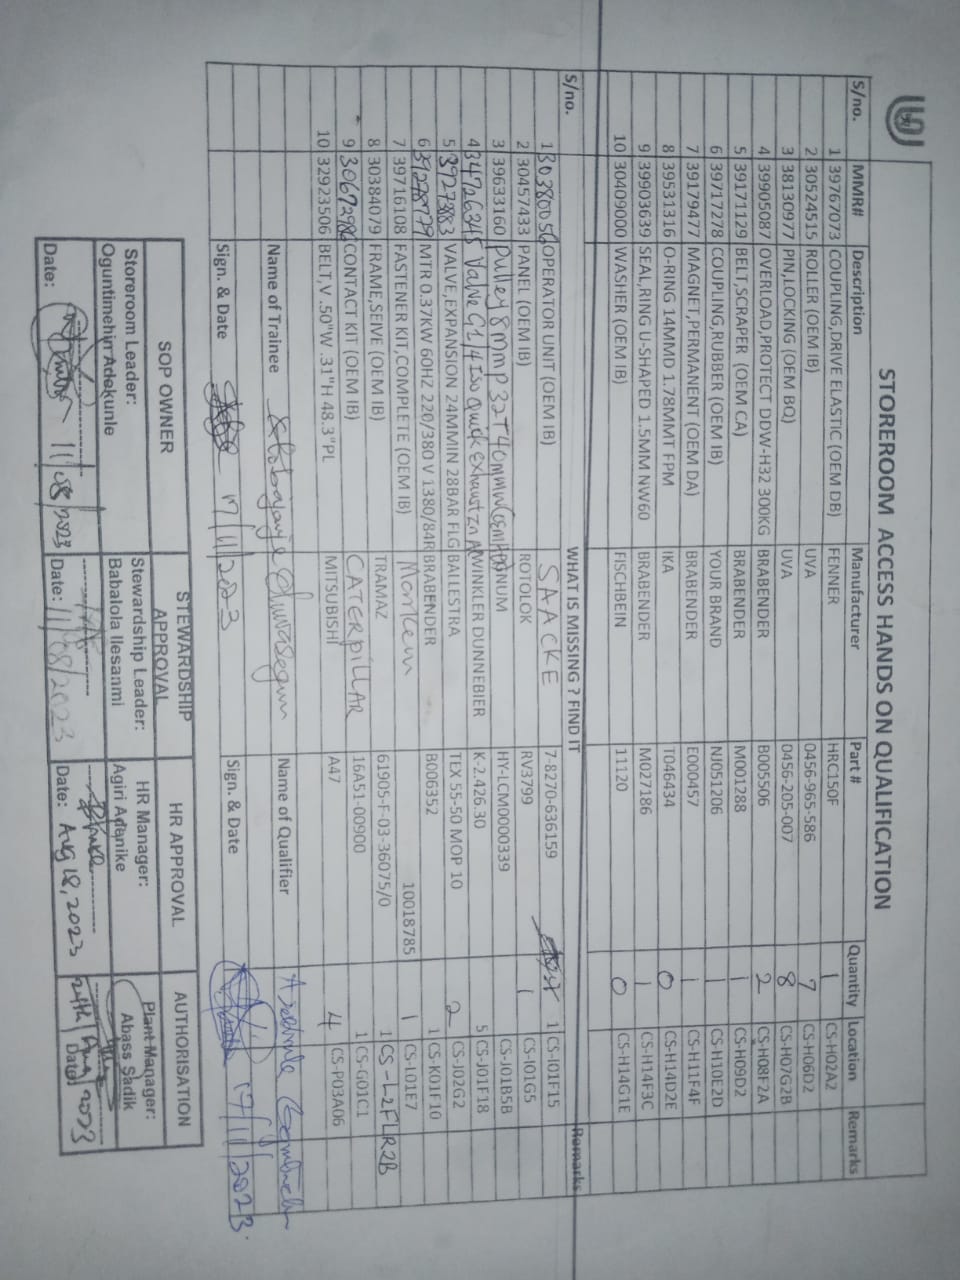 STOREROOM ACCESS HANDS ON QUALIFICATION
S/no. MMR# Description Manufacturer Part # Quantity Location Remarks
1 39767073 COUPLING,DRIVE ELASTIC (OEM DB) FENNER HRC150F 1 CS-H02A2
2 30524515 ROLLER (OEM IB) UVA 0456-965-586 7 CS-H06D2
3 38130977 PIN,LOCKING (OEM BQ) UVA 0456-205-007 8 CS-H07G2B
4 39905087 OVERLOAD,PROTECT DDW-H32 300KG BRABENDER B005506 2 CS-H08F2A
5 39171129 BELT,SCRAPER (OEM CA) BRABENDER M001288 1 CS-H09D2
6 39717278 COUPLING,RUBBER (OEM IB) YOUR BRAND NJ051206 1 CS-H10E2D
7 39179477 MAGNET,PERMANENT (OEM DA) BRABENDER E000457 1 CS-H11F4F
8 39531316 O-RING 14MMD 1.78MMT FPM IKA T046434 0 CS-H14D2E
9 39903639 SEAL,RING U-SHAPED 1.5MM NW60 BRABENDER M027186 1 CS-H14F3C
10 30409000 WASHER (OEM IB) FISCHBEIN 11120 0 CS-H14G1E
S/no. WHAT IS MISSING ? FIND IT Remarks
1 30380056 OPERATOR UNIT (OEM IB) SAACKE 7-8270-636159 1 CS-I01F15
2 30457433 PANEL (OEM IB) ROTOLOK RV3799 1 CS-I01G5
3 39633160 Pulley 8mmp 32T 40mmw NUM HY-LCM0000339 CS-J01B5B
4 34726345 Valve G1/4 Iso Quick Exhaust Zn A WINKLER DUNNEBIER K-2.426.30 5 CS-J01F18
5 39273883 VALVE,EXPANSION 24MMIN 28BAR FLG BALLESTRA TEX 55-50 MOP 10 2 CS-J02G2
6 39278779 MTR 0.37KW 60HZ 220/380 V 1380/84R BRABENDER B006352 1 CS-K01F10
7 39716108 FASTENER KIT,COMPLETE (OEM IB) Markem 10018785 1 CS-L01E7
8 30384079 FRAME,SEIVE (OEM IB) TRAMAZ 61905-F-03-36075/0 1 CS-L2FLR2B
9 30672986 CONTACT KIT (OEM IB) CATERPILLAR 16A51-00900 1 CS-G01C1
10 32923506 BELT,V .50"W .31"H 48.3"PL MITSUBISHI A47 4 CS-P03A06
Name of Trainee Oluwasegun Name of Qualifier
Sign. & Date 17/11/2023 Sign. & Date 17/11/2023
SOP OWNER STEWARDSHIP APPROVAL HR APPROVAL AUTHORISATION
Storeroom Leader: Stewardship Leader: HR Manager: Plant Manager:
Oguntimehin Adekunle Babalola Ilesanmi Agiri Adenike Abass Sadik
Date: 11/08/2023 Date: 11/08/2023 Date: Aug 18, 2023 Date: 24th/Aug/2023